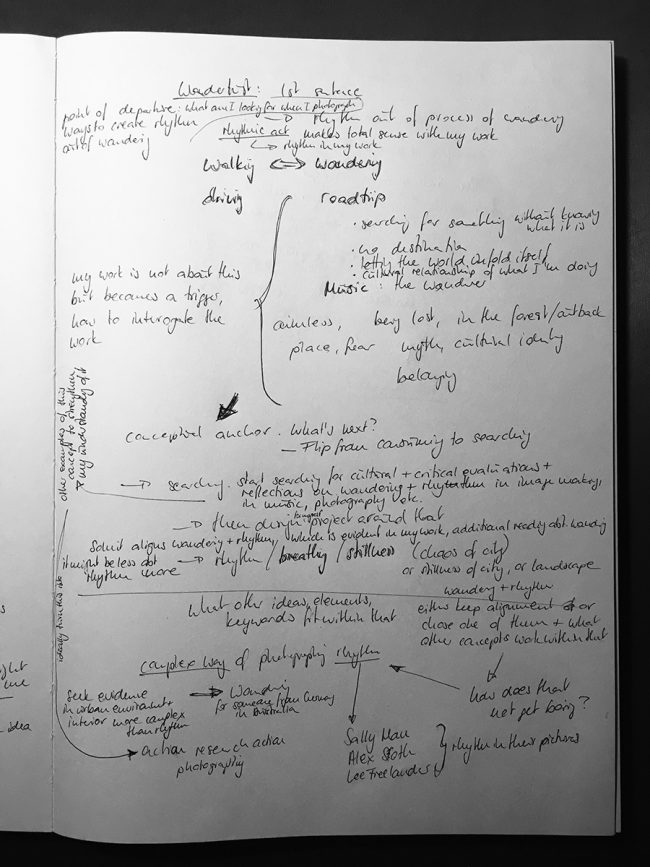 Wanderlust: 1st sentence
point of departure: what am I looking for when I photograph
ways to create rhythm
out of wandering
→ rhythm out of process of wandering
rhythmic act makes total sense with my work
↳ rhythm in my work
walking ⟺ wandering
driving
roadtrip
· searching for something without knowing
what it is
· no destination
· letting the world unfold itself
· cultural relationship of what I'm doing
Music: the wanderer
my work is not about this
but becomes a trigger,
how to interrogate the
work
aimless, being lost, in the forest/outback
place, fear myth, cultural identity
belonging
conceptual anchor. What's next?
– Flip from consuming to searching
other examples of this
concept to strengthen
my understanding of it
→ searching. start searching for cultural + critical evaluations +
reflections on wandering + rhythm in image making,
in music, photography etc.
→ then design project around that
Solnit aligns wandering + rhythm, which is evident in my work, additional reading abt. wandering
it might be less abt
rhythm more
→ rhythm / breathing / stillness
(chaos of city)
or stillness of city, or landscape
wandering + rhythm
What other ideas, elements,
keywords fit within that
either keep alignment or
chose one of them + what
other concepts work within that
complex way of photographing rhythm
how does that
not get boring?
Seek evidence
in urban environment +
interior more complex
than rhythm
→ Wandering
for someone from Germany
in Australia
→ action research action
photography
Sally Mann
Alex Soth
Lee Freelander
} rhythm in their pictures
ght
me
idea